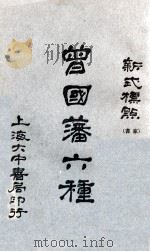 新式標點
（家書）
曾國藩六種
上海大中書局印行